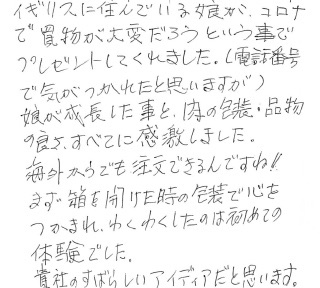 イギリスに住んでいる娘が、コロナ
で買物が大変だろうという事で
プレゼントしてくれました。(電話番号
で気がつかれたと思いますが)
娘が成長した事と、肉の包装・品物
の良さ、すべてに感激しました。
海外からでも注文できるんですね!!
まず箱を開けた時の包装で心を
つかまれ、わくわくしたのは初めての
体験でした。
貴社のすばらしいアイディアだと思います。